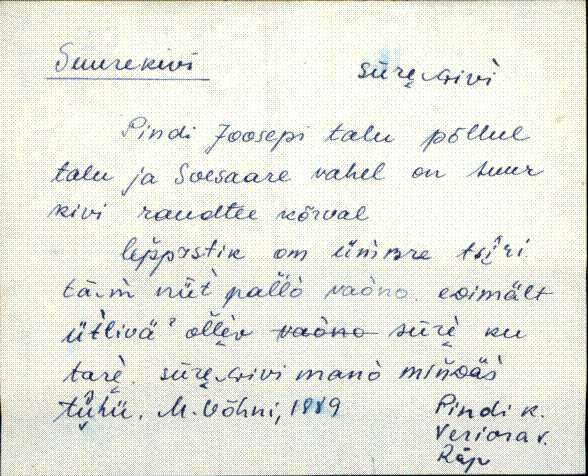 Suurekivi
sūrekivì
Pindi Joosepi talu põllul
talu ja Soesaare vahel on suur
kivi raudtee kõrval
leppистik om ümbre tsȋri.
nüt pallò vaòno. edimält
ütlivä ollèv vaòno sūrè ku
tarè. sūrekivi manò
tühü. M. Võhni, 1889
Pindi k.
Veriora v.
Räp